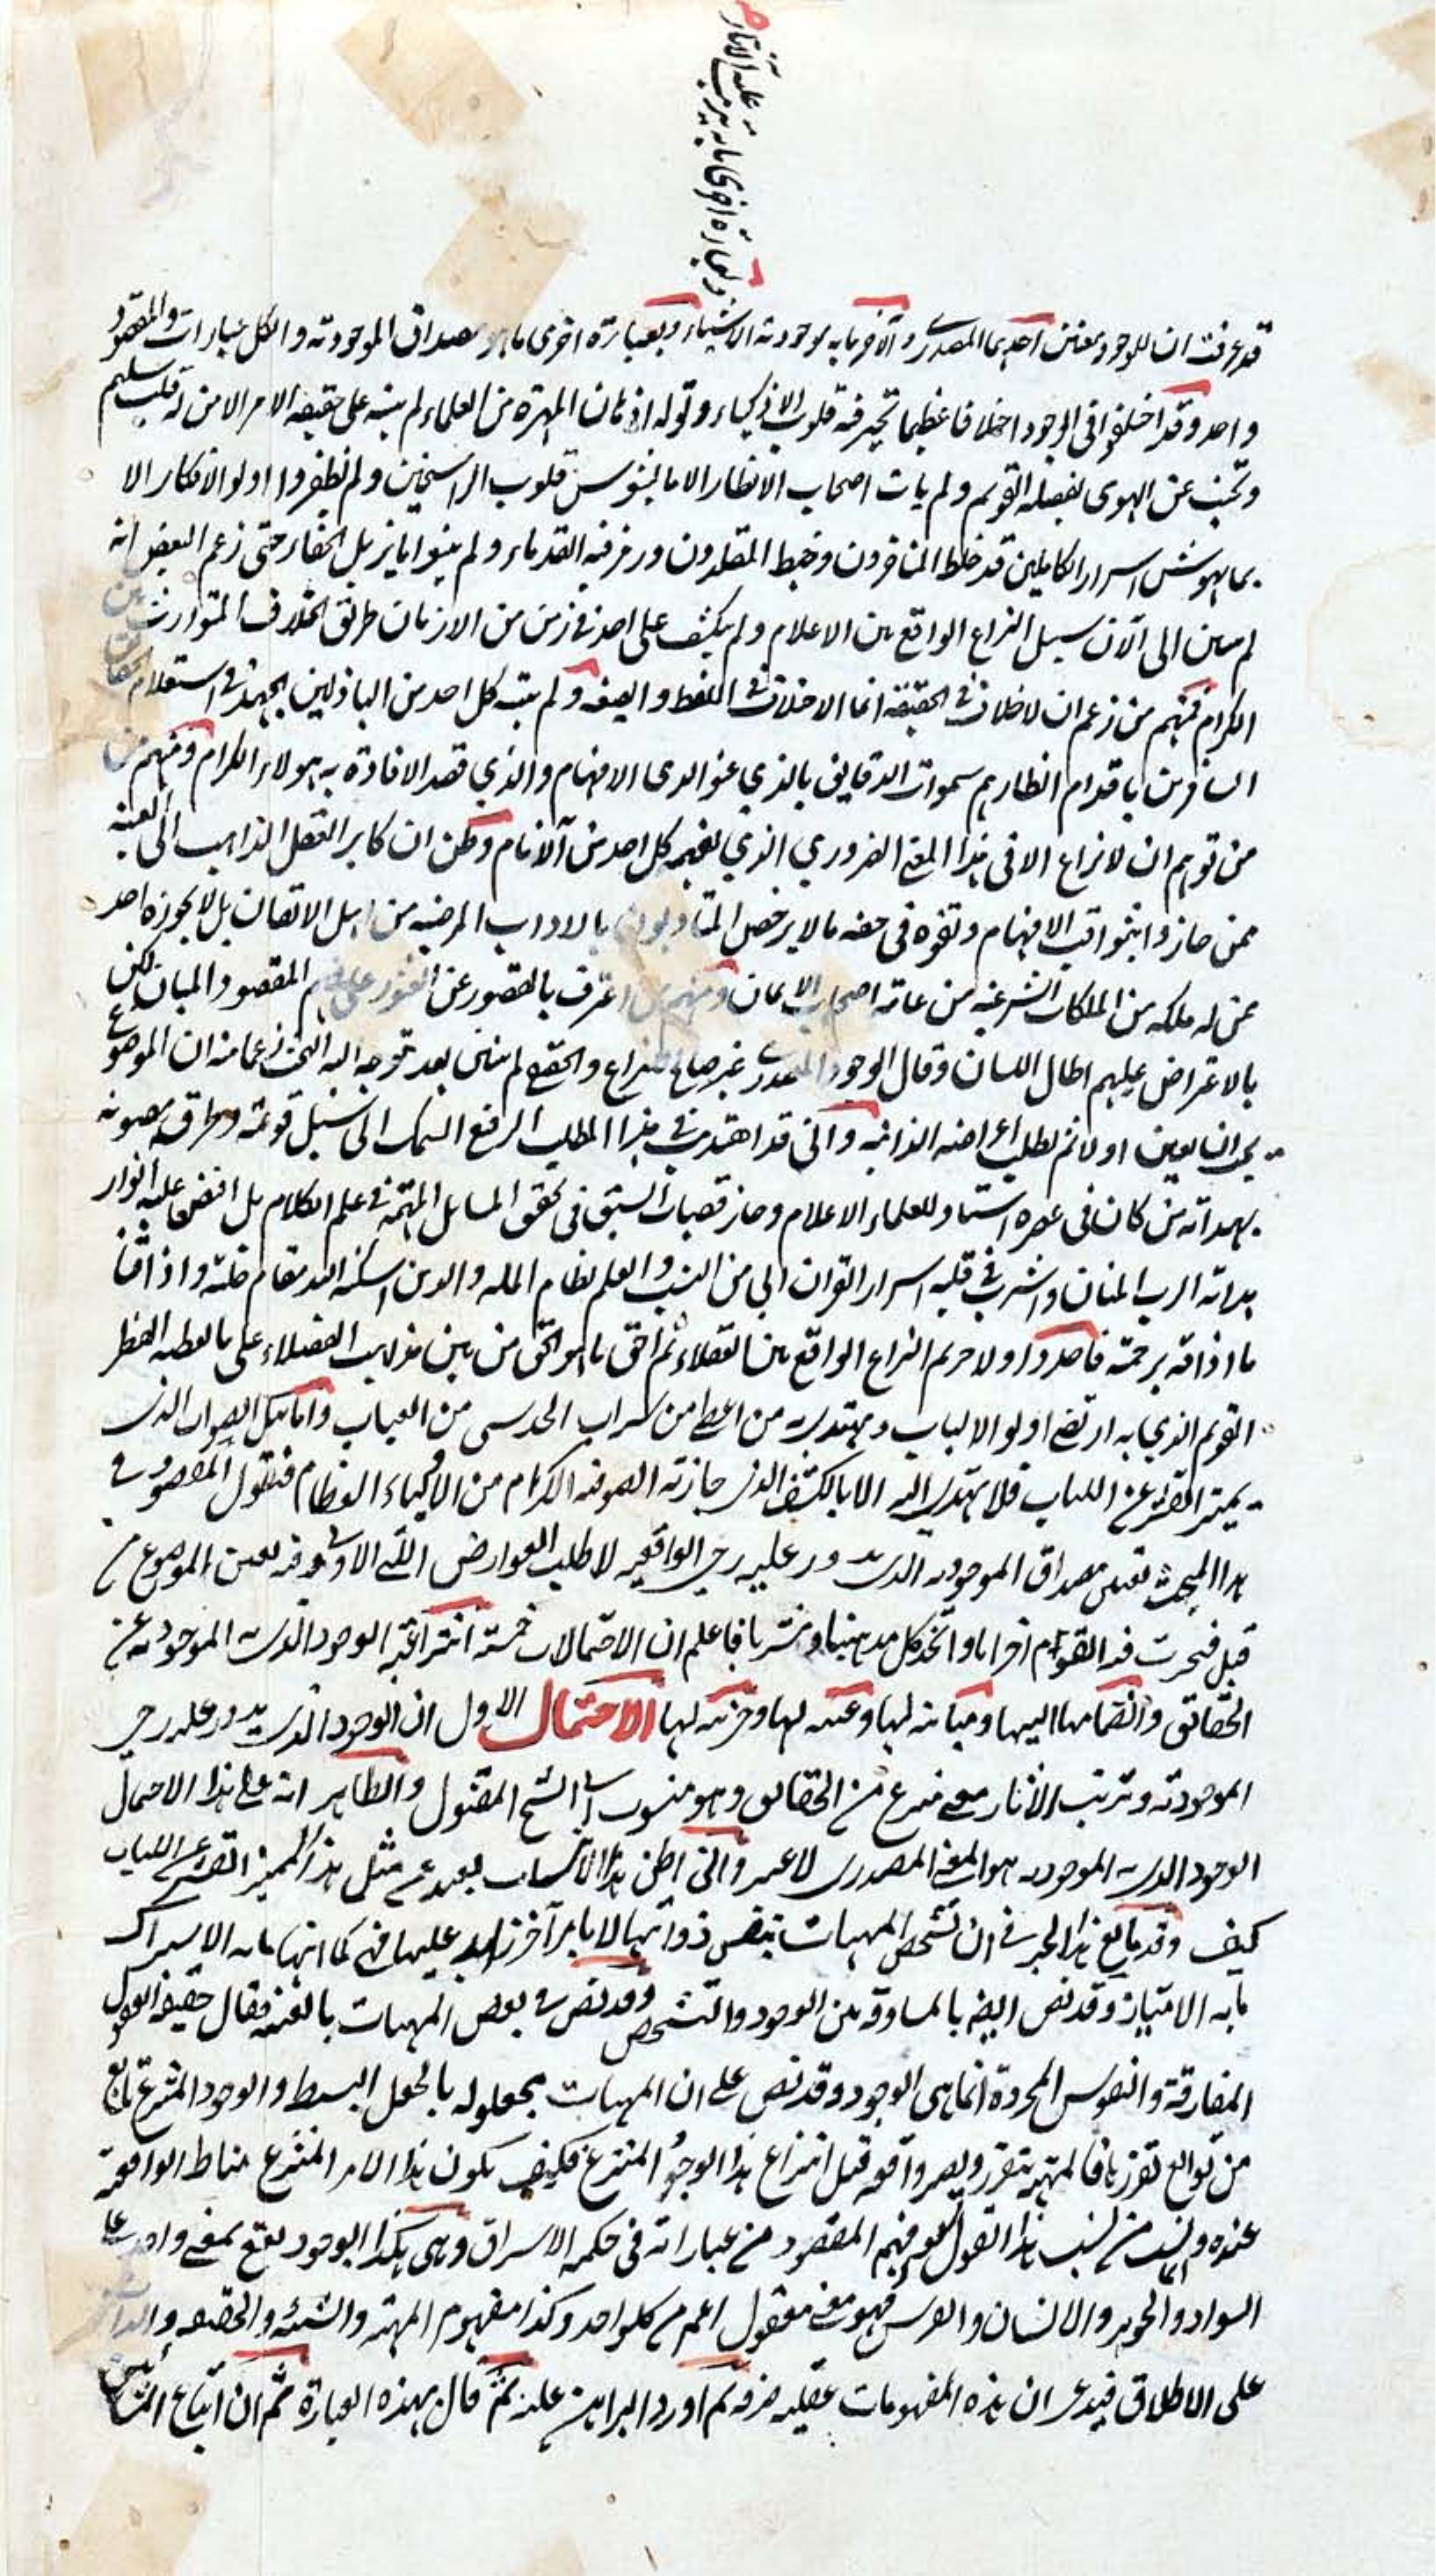 وبعبارة اخرى ما به يترتب عليه الآثار
قد عرفت ان للوجود معنيين احدهما المصدرى والآخر ما به موجودية الاشياء وبعبارة اخرى ما هو مصداق الموجودية والكل عبارات والمقصود
واحد وقد اختلفوا فى الوجود اختلافا عظيما تحير فيه قلوب الاذكياء وتوله اذهان المهرة من العلماء لم ينبه على حقيقة الامر الا من له قلب سليم
وتجنب عن الهوى بفضله القويم ولم يات اصحاب الانظار الا ما يشوش قلوب الراسخين ولم يظفروا اولو الافكار الا
بما يهوش اسرار الكاملين قد خلط المتاخرون وخبط المقلدون ورمز فيه القدماء ولم يبينوا ما يزيل الخفاء حتى زعم البعض انه
لم يبين الى الآن سبيل النزاع الواقع بين الاعلام ولم يكشف على احد فى زمن من الازمان طريق الخلاف المتوارث بين
الكرام فمنهم من زعم ان لا خلاف فى الحقيقة انما الاختلاف فى اللفظ والصيغة ولم يتنبه كل احد من الباذلين الجهد فى استعلام الحقائق
السافرين باقدام انظارهم سموات الدقايق بالذي عنوا لدى الافهام والذي قصد الافادة به هولاء الكرام ومنهم من
من توهم ان لا نزاع الا فى هذا المعنى الضروري الذي يفهمه كل احد من الانام وظن ان كابر العقل الذاهب الى العينية
ممن حازوا الافهام وتفوه فى حقه ما لا يرخص المتادبون بالاداب المرضية من اهل الاتقان بل لا يجوزه احد
ممن له ملكة من الملكات الشرعية من عامة اصحاب الايمان ومنهم من اعترف بالقصور عن العثور على فهم المقصود والمبان لكن
بالاعتراض عليهم اطال اللسان وقال الوجود المصدرى غير صالح للنزاع والحقيقى لم يتبين بعد توجه اليه البحث زعما منه ان الموضوع
يجب ان يعين اولا ثم يطلب اعراضه الذاتية وانى قد اهتديت فى هذا المطلب الرفيع السمك الى سبل قويمة وطرق مصونة
بهداية من كان فى عصره استاد للعلماء الاعلام وحاز قصبات السبق فى تحقيق المسائل المهمة فى علم الكلام بل افيض عليه انوار
هداية الرب المنان واشرب فى قلبه اسرار القران ابى من النسب والعلم نظام الملة والدين اسكنه الله مقام خلته واذاقنا
ما اذاقه برحمته فاصدر اولا حريم النزاع الواقع بين العقلاء ثم احق ما هو الحق من بين مذاهب الفضلاء على ما يعطيه النظر
القويم الذي به ارتضى اولو الالباب ويهتدى به من اعطى من شراب الحدسى من العباب واما كل الصواب الذى
يميز القشر عن اللباب فلا يهتدى اليه الا بالكشف الذى حازته الصوفية الكرام من الاولياء العظام فنقول المقصود فى
هذا المبحث تعيين مصداق الموجودية الذى يدور عليه رحى الواقعية لا طلب العوارض اللتى الاولى وفيه تعيين الموضوع من
قبل فتحزب فيه القوم احزابا واتخذ كل مذهبا ومشربا فاعلم ان الاحتمالات خمسة انتزاعية الوجود الذى به الموجودية عن
الحقائق وانضمامها اليها ومباينة لها وعينية لها وجزئية لها الاحتمال الاول ان الوجود الذى يدور عليه رحى
الموجودية وترتب الآثار معنى منتزع من الحقائق وهو منسوب الى الشيخ المقتول والظاهر انه على هذا الاحتمال
الوجود الذى به الموجودية هو المعنى المصدرى لا غير وانى اظن هذا الانتساب بعيد عن مثل هذا المميز القشر عن اللباب
كيف وقد بالغ هذا الحبر فى ان تشخص المهيات بنفس ذواتها لا بامر آخر زايد عليها فهى كما انها ما به الاشتراك
ما به الامتياز وقد نص ايضا بالمساوقة بين الوجود والتشخص وقد نص فى بعض المهيات بالعينية فقال حقيقة العقول
المفارقة والنفوس المجردة انما هى الوجود وقد نص على ان المهيات مجعولة بالجعل البسيط والوجود المنتزع تابع
من توابع تقررها فالمهية تتقرر ويصير واقعة قبل انتزاع هذا الوجود المنتزع فكيف يكون هذا الامر المنتزع مناط الواقعية
عنده وانما نسب من نسب هذا القول لعدم فهم المقصود من عباراته فى حكمة الاشراق وهى هكذا الوجود يقع بمعنى واحد على
السواد والجوهر والانسان والفرس فهو معنى معقول اعم من كل واحد وكذا مفهوم المهية والشيئية والحقيقة والذات
على الاطلاق فيدعى ان هذه المفهومات عقلية صرفة ثم اورد البراهين عليه ثم قال بهذه العبارة ثم ان اتباع المشائين